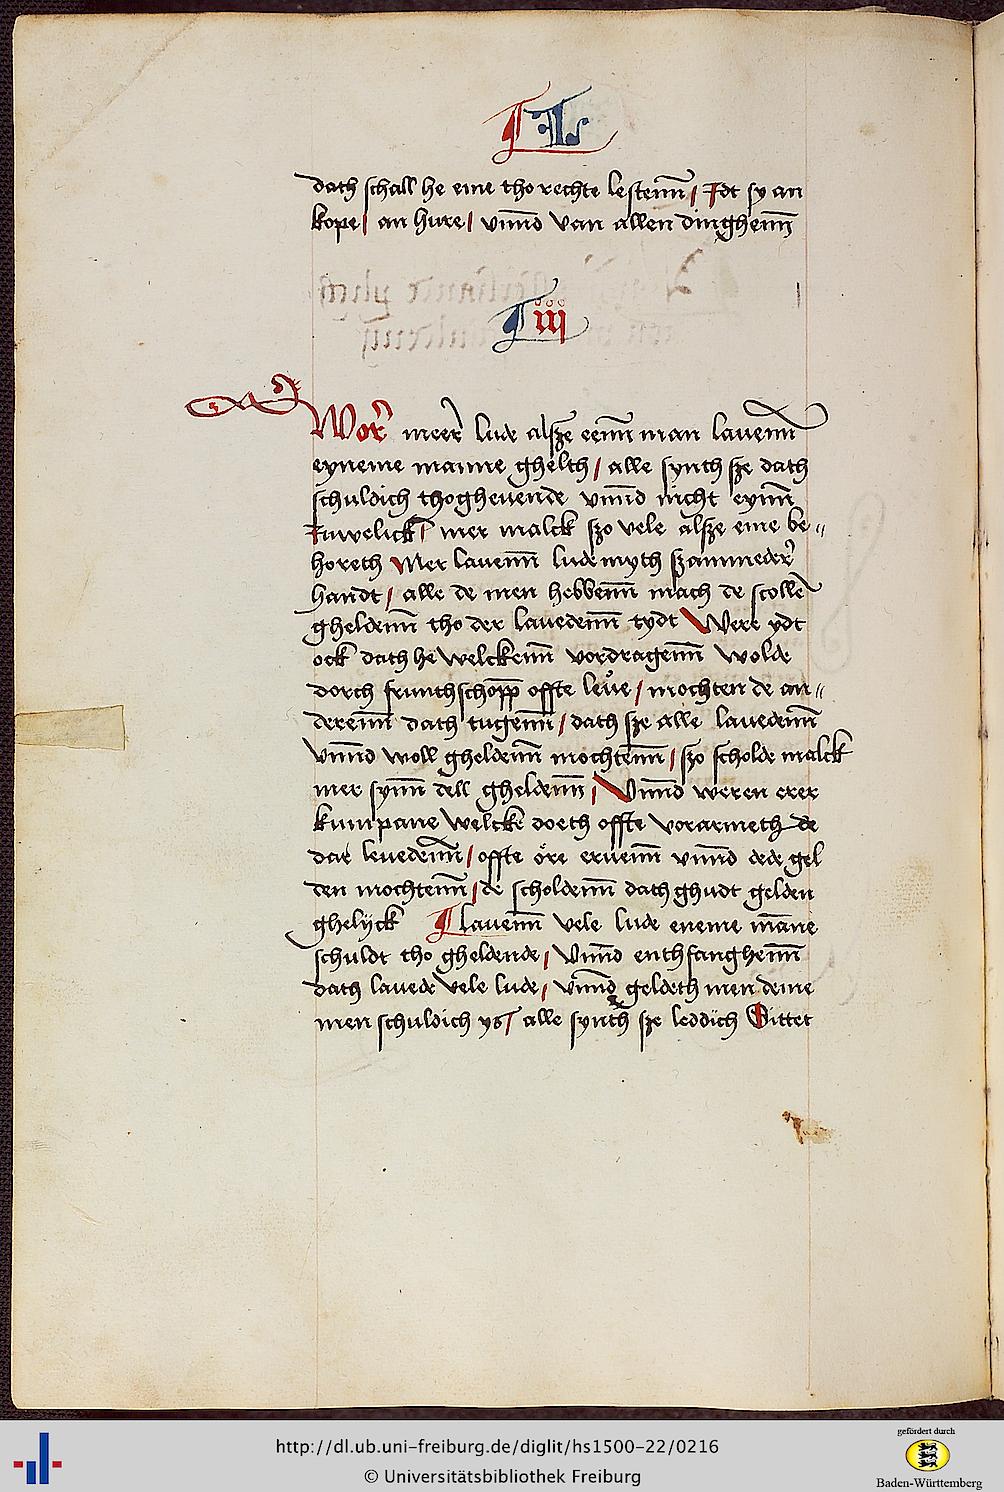 L
dath schall he eine tho rechte lestenn / Idt sy an
kope / an hure / vnnd van allen dinghenn
iij
Wor meer lude alsze eenn man lavenn
eyneme manne ghelth / alle synth sze dath
schuldich thoghevende vnnd nicht eynn
Iuwelick / mer malck szo vele alsze eme be-
horeth Mer lavenn lude myth szammeder
handt / alle de men hebbenn mach de scollē
gheldenn tho der lavedenn tydt Were ydt
ock dath he welckenn vordragenn wolde
dorch frunthschopp offte leue / mochten de an-
derenn dath tugenn / dath sze alle lavedenn
Vnnd woll gheldenn mochtenn / szo scholde malck
mer synn dell gheldenn / Vnnd weren erer
kumpane welcke doeth offte vorarmeth de
dar levedenn / offte ore ervenn vnnd dede gel
den mochtenn / de scholdenn dath ghudt gelden
ghelijck lavenn vele lude eneme māne
schuldt tho gheldende / Vnnd enthfanghenn
dath lavede vele lude / vnnd geldeth men deme
men schuldich ys / alle synth sze leddich Dittet
http://dl.ub.uni-freiburg.de/diglit/hs1500-22/0216
© Universitätsbibliothek Freiburg
gefördert durch
Baden-Württemberg